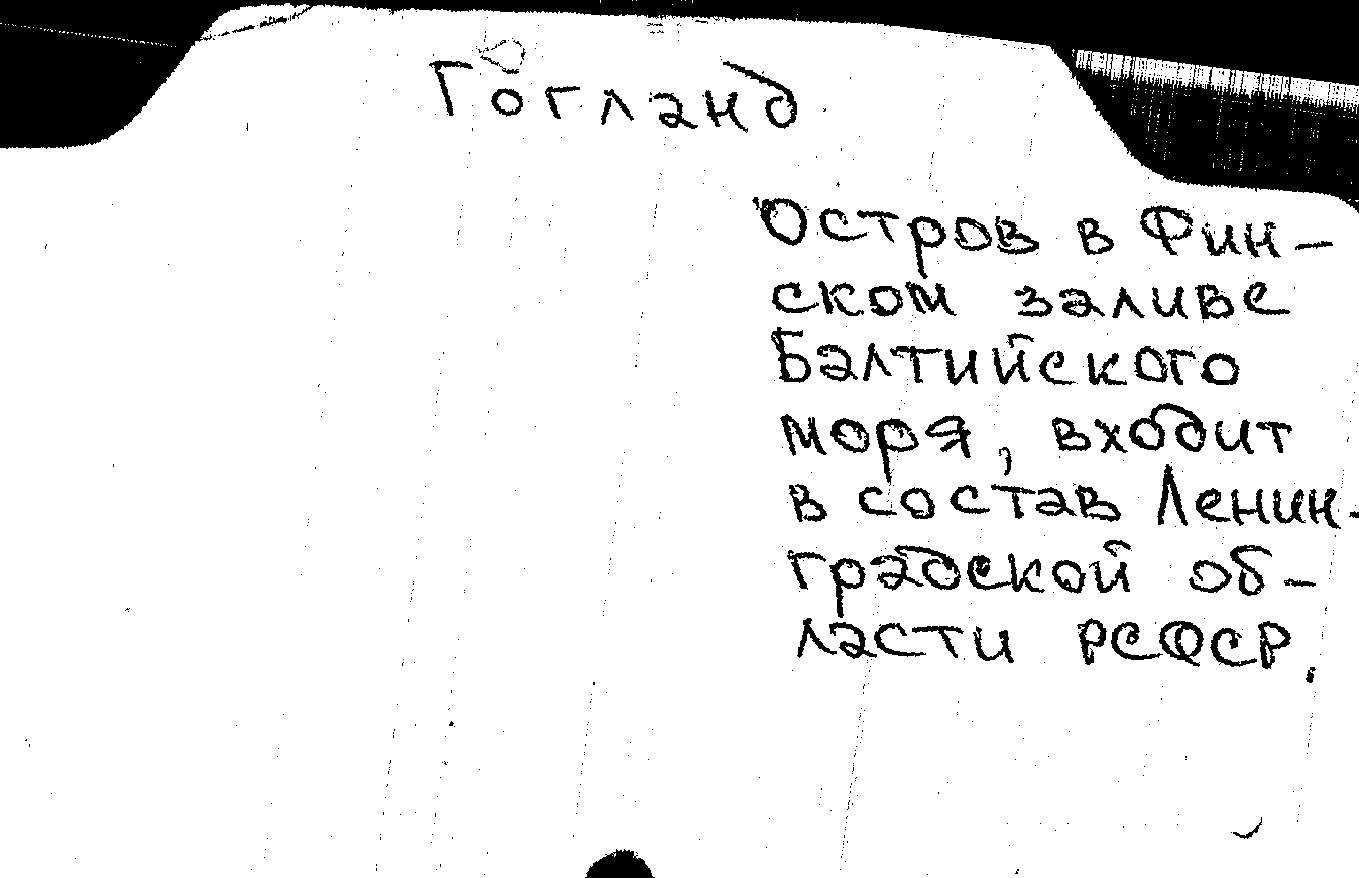 Гогланд
Остров в Фин-
ском заливе
Балтийского
моря, входит
в состав Ленин-
градской об-
ласти РСФСР.